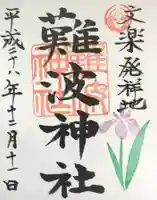 文楽発祥地
難波神社
平成二十八年十二月十一日